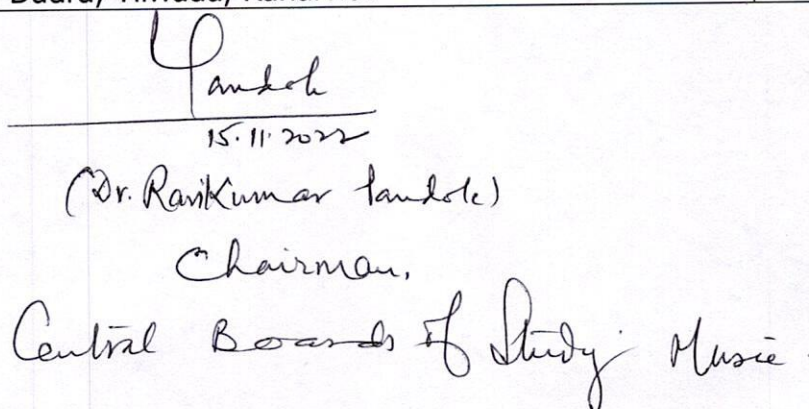 Pandole
15.11.2022
(Dr. RaviKumar Pandole)
Chairman,
Central Boards of Study Music.